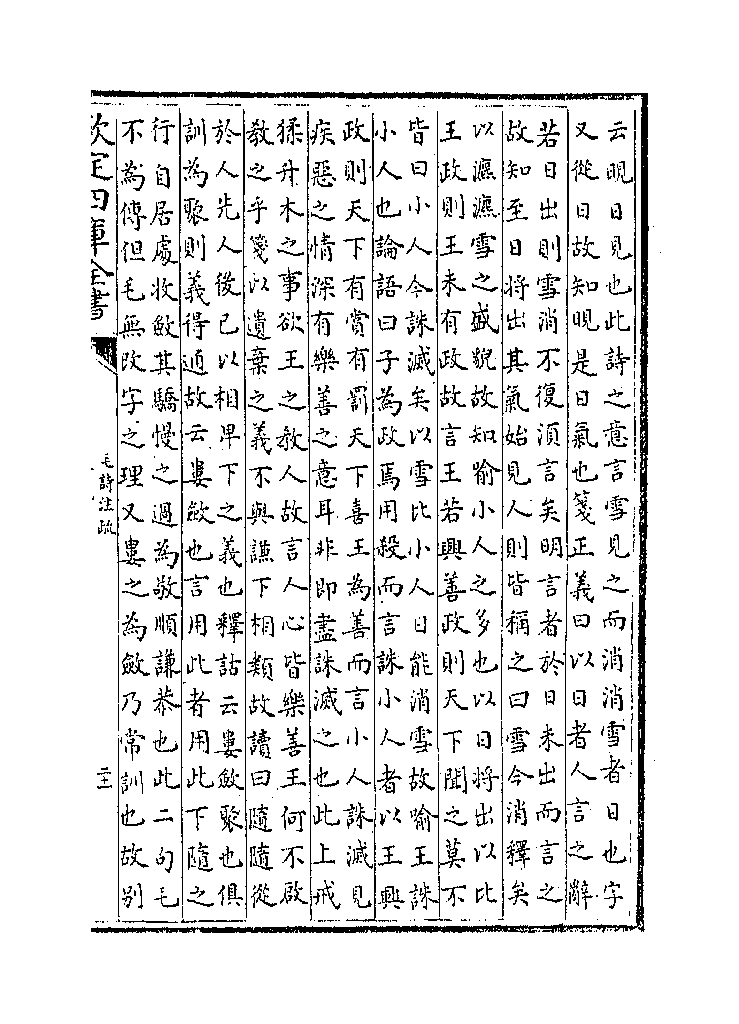 云晛日見也此詩之意言雪見之而消消雪者日也字
又從日故知晛是日氣也箋正義曰以日者人言之辭
若日出則雪消不復須言矣明言者於日未出而言之
故知至日將出其氣始見人則皆稱之曰雪今消釋矣
以瀌瀌雪之盛貌故知喻小人之多也以日將出以比
王政則王未有政故言王若興善政則天下聞之莫不
皆曰小人今誅滅矣以雪比小人日能消雪故喻王誅
小人也論語曰子為政焉用殺而言誅小人者以王興
政則天下有賞有罰天下喜王為善而言小人誅滅見
疾惡之情深有樂善之意耳非即盡誅滅之也此上戒
猱升木之事欲王之教人故言人心皆樂善王何不啟
教之乎箋以遺棄之義不與謙下相類故讀曰隨隨從
於人先人後己以相卑下之義也釋詁云婁斂聚也俱
訓為聚則義得通故云婁斂也言用此者用此下隨之
行自居處收斂其驕慢之過為敬順謙恭也此二句毛
不為傳但毛無改字之理又婁之為斂乃常訓也故別
欽定四庫全書
毛詩注疏
二十二